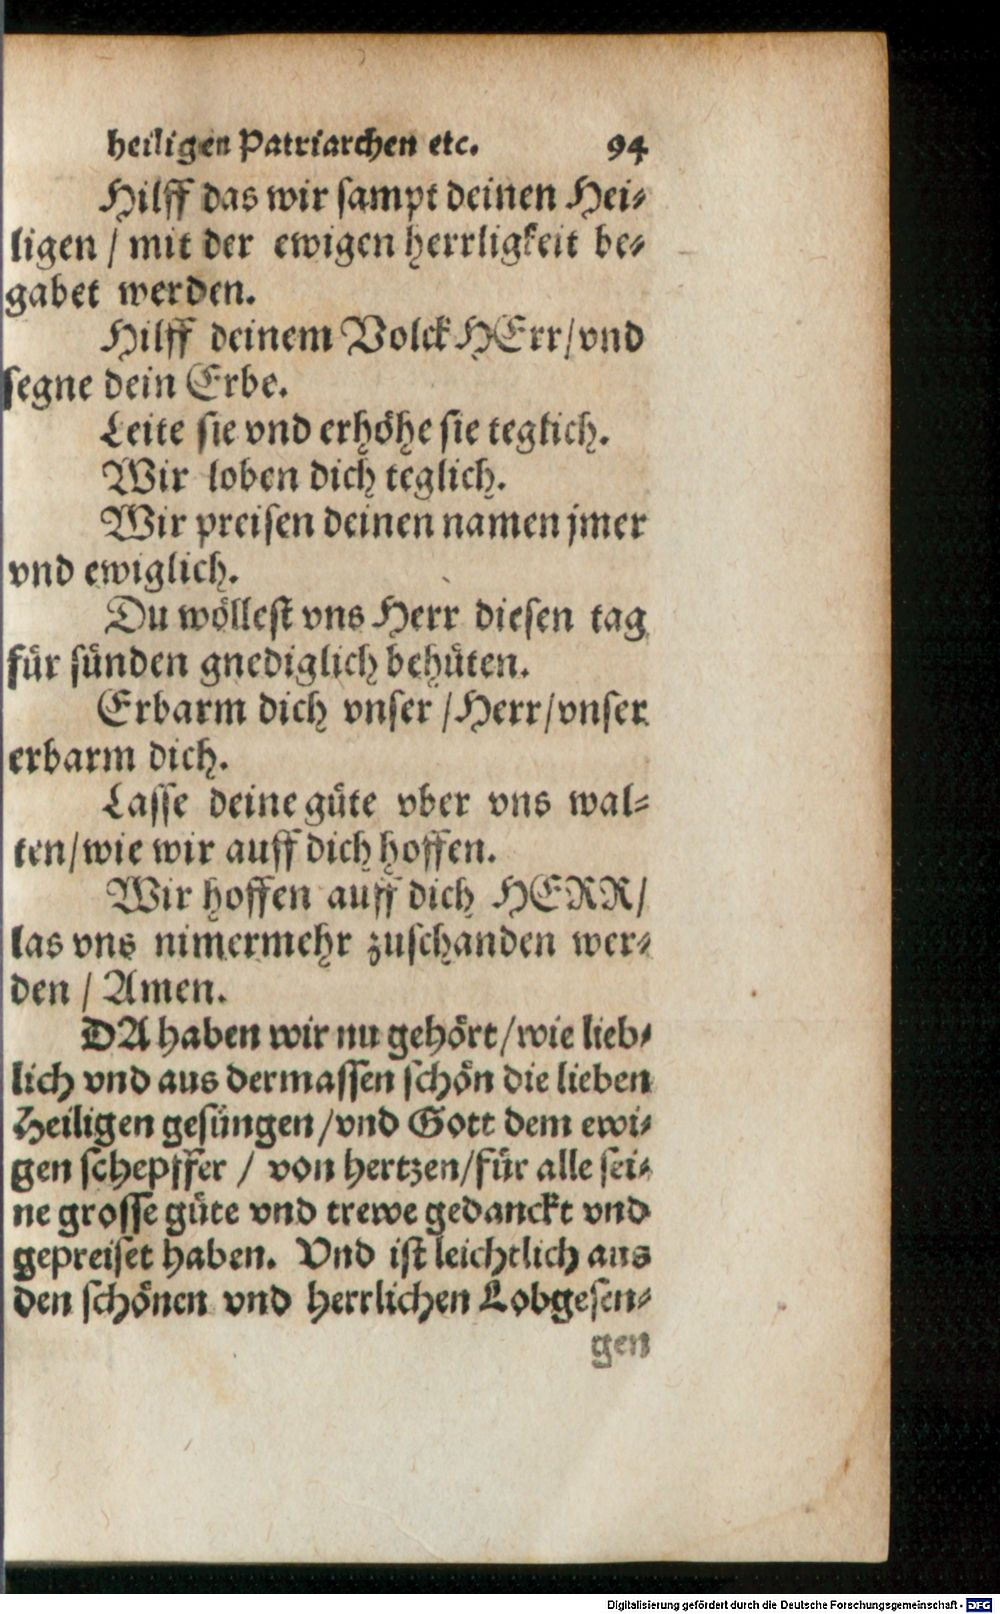 heiligen Patriarchen etc. 94
Hilff das wir sampt deinen Hei-
ligen / mit der ewigen herrligkeit be-
gabet werden.
Hilff deinem Volck HErr/vnd
segne dein Erbe.
Leite sie vnd erhöhe sie teglich.
Wir loben dich teglich.
Wir preisen deinen namen jmer
vnd ewiglich.
Du wöllest vns Herr diesen tag
für sünden gnediglich behüten.
Erbarm dich vnser / Herr/vnser
erbarm dich.
Lasse deine güte vber vns wal-
ten/wie wir auff dich hoffen.
Wir hoffen auff dich HERR/
las vns nimermehr zuschanden wer-
den / Amen.
DA haben wir nu gehört/wie lieb-
lich vnd aus dermassen schön die lieben
Heiligen gesüngen/vnd Gott dem ewi-
gen schepffer / von hertzen/für alle sei-
ne grosse güte vnd trewe gedanckt vnd
gepreiset haben. Vnd ist leichtlich aus
den schönen vnd herrlichen Lobgesen-
gen
Digitalisierung gefördert durch die Deutsche Forschungsgemeinschaft - DFG